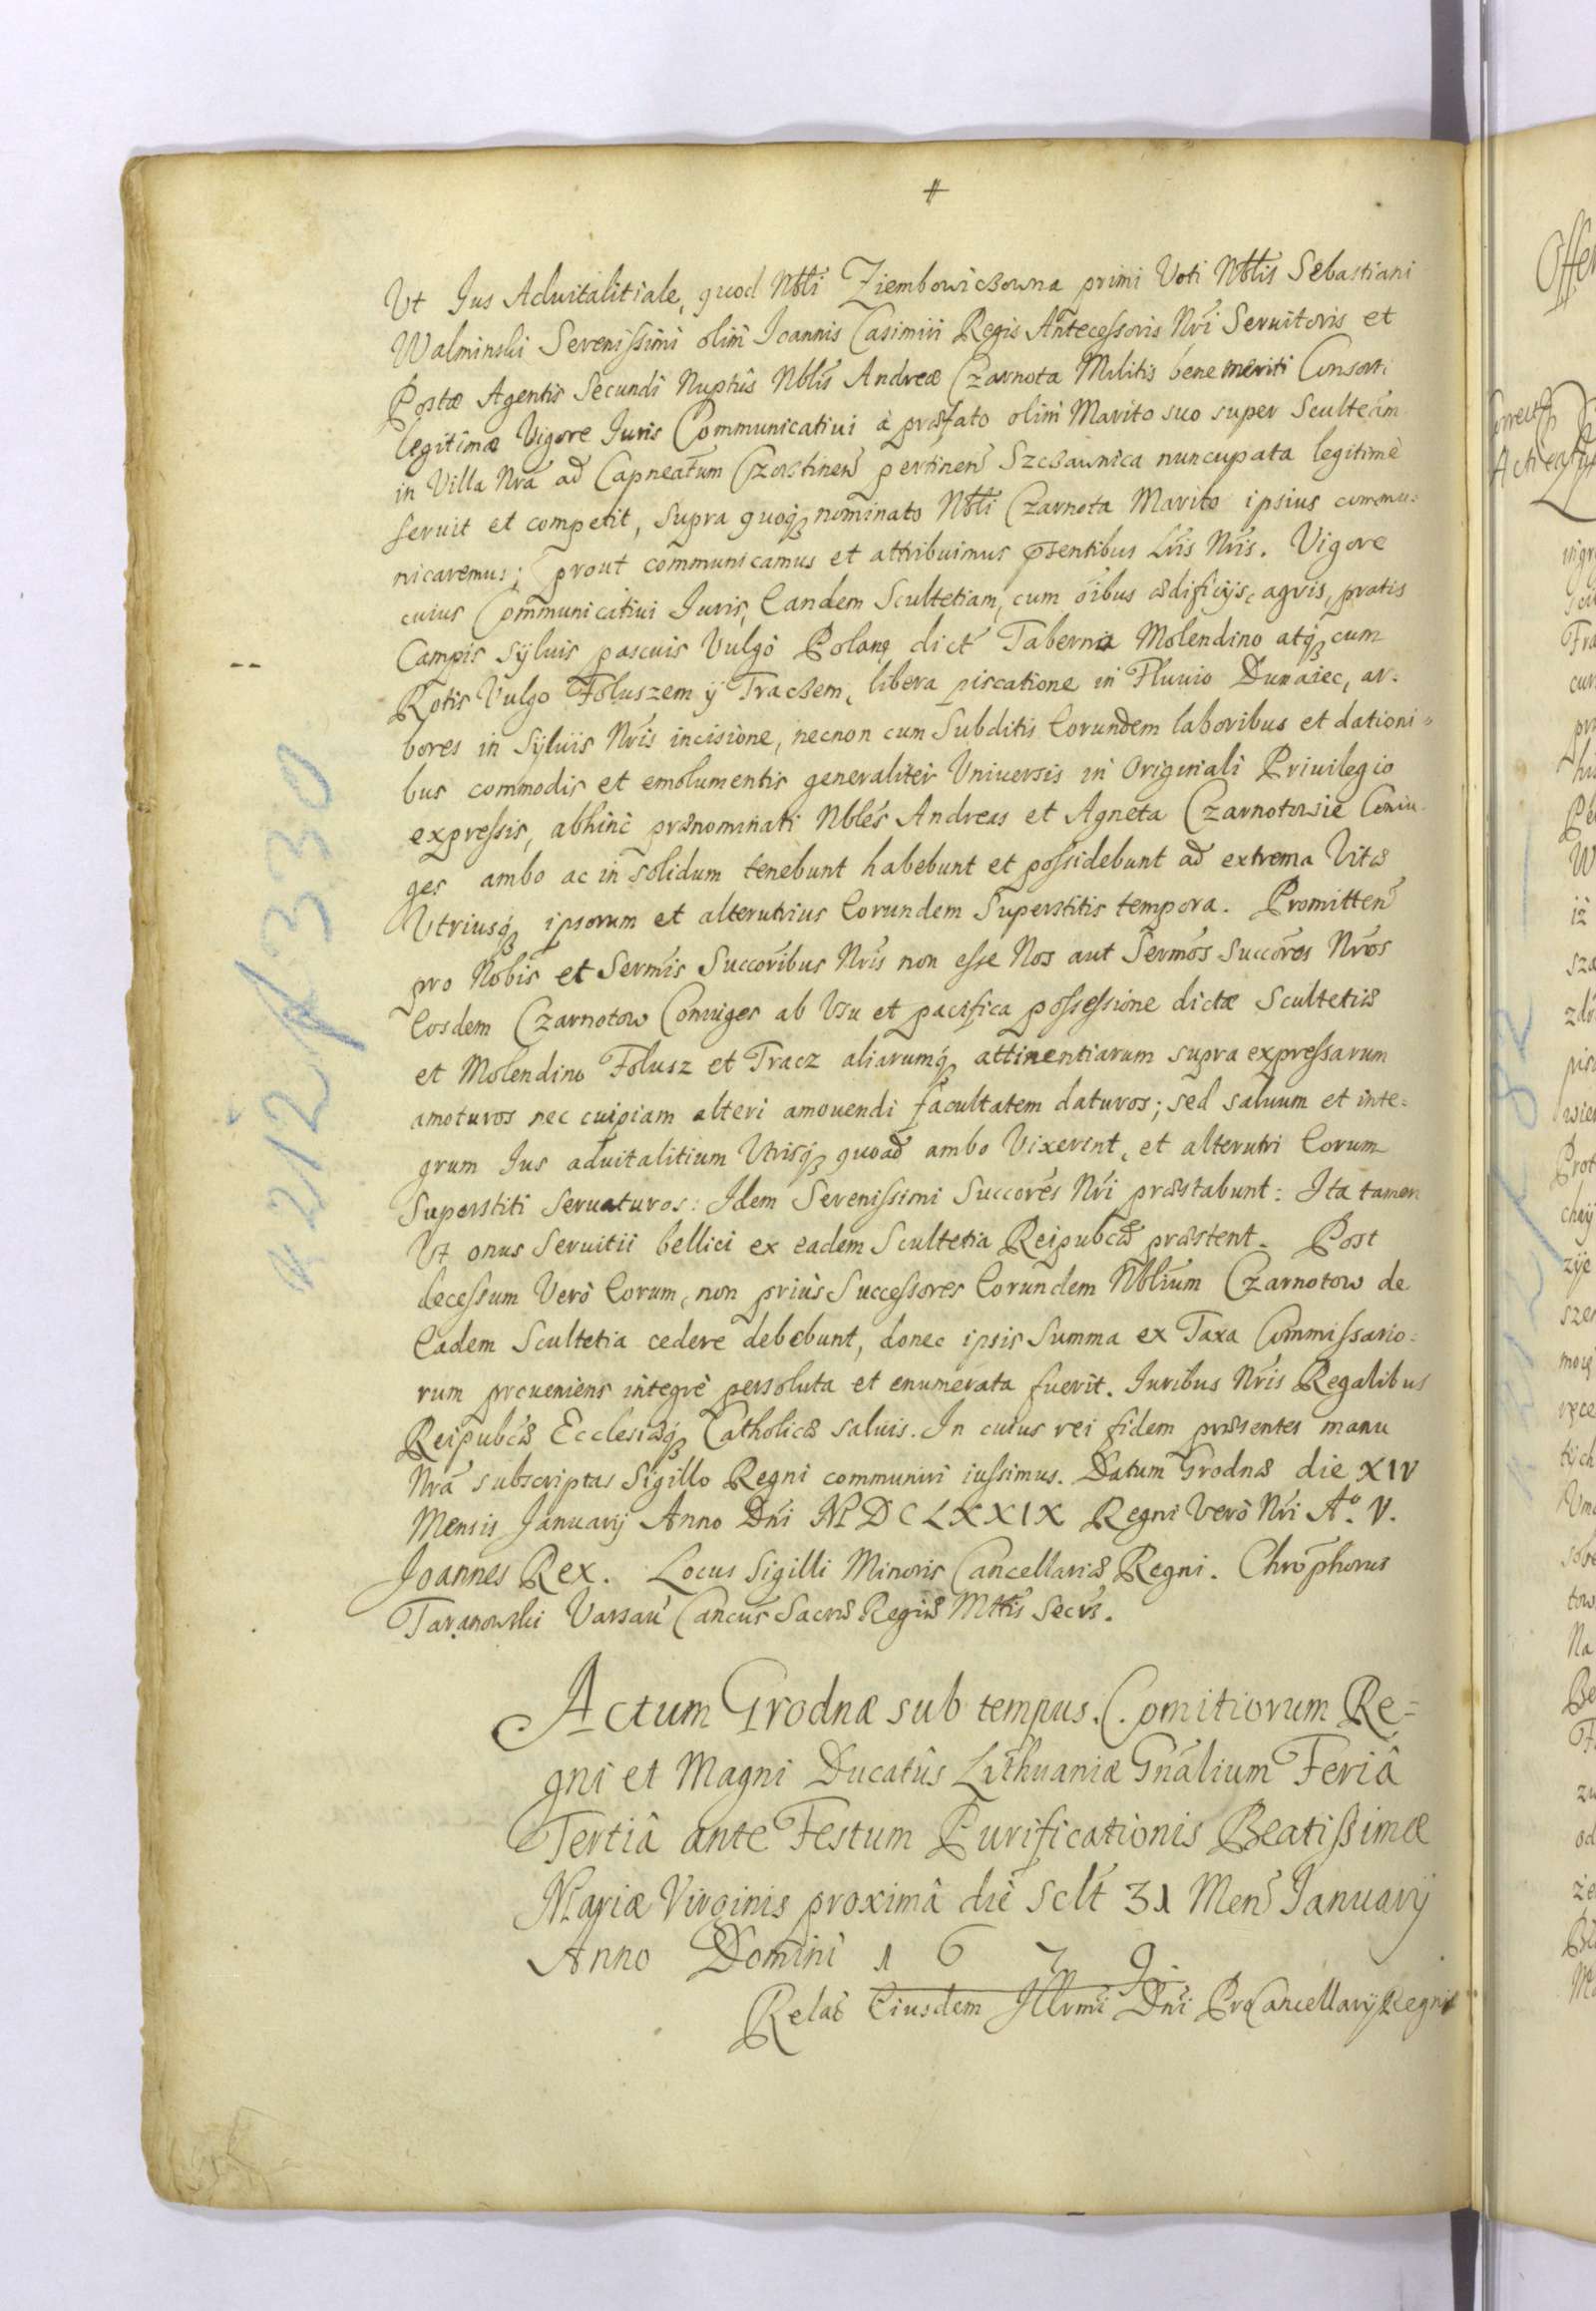 Ut Jus Aduitalitiale, quod Nbłi Ziembowiczowna primi Voti Nbłis Sebastiani
Walminski Serenissimi olim Joannis Casimiri Regis Antecessoris Nri Seruitoris et
Postæ Agentis Secundi Nuptûs Nblis Andreæ Czarnota Militis bene meriti Consorti
legitimæ Vigore Juris Communicatiui à præfato olim Marito suo super Sculteam
in Villa Nra ad Capneatum Czorstinen pertinen Szczawnica nuncupata legitimè
seruit et competit, supra quoq nominato Nbłi Czarnota Marito ipsius commu:
nicaremus; prout communicamus et attribuimus psentibus Lris Nris. Vigore
cuius Communicatiui Juris, Eandem Scultetiam, cum oibus ædificijs, agris, pratis
Campis Sÿluis pascuis Vulgò Polanÿ dict Taberna Molendino atq cum
Rotis Vulgo Foluszem ÿ Traczem, libera piscatione in Fluuio Dunaiec, ar-
bores in Sÿluis Nris incisione, necnon cum Subditis Eorundem laboribus et dationi=
bus commodis et emolumentis generaliter Uniuersis in Originali Priuilegio
expressis, abhinc prænominati Nbles Andreas et Agneta Czarnotowie Coniu-
ges ambo ac in solidum tenebunt habebunt et possidebunt ad extrema Vitæ
Utriusq ipsorum et alterutrius Eorundem Superstitis tempora. Promitten
pro Nobis et Sermis Succoribus Nris non esse Nos aut Sermos Succores Nros
Eosdem Czarnotow Coniuges ab Usu et pacifica possessione dictæ Scultetiæ
et Molendino Folusz et Tracz aliarumq attinentiarum supra expressarum
amoturos nec cuipiam alteri amouendi facultatem daturos; sed saluum et inte=
grum Jus aduitalitium Utrisq quoad ambo Vixerint, et alterutri Eorum
Superstiti Seruaturos: Idem Serenissimi Succores Nri præstabunt: Ita tamen
Ut onus Seruitii bellici ex eadem Scultetia Reipubcæ præstent. Post
decessum Verò Eorum, non priùs Successores Eorundem Nblium Czarnotow de
Eadem Scultetia cedere debebunt, donec ipsis Summa ex Taxa Commissario:
rum proueniens integrè persoluta et enumerata fuerit. Juribus Nris Regalibus
Reipubcæ Ecclesiæq Catholicæ saluis. In cuius rei fidem præsentes manu
Nra subscriptas Sigillo Regni communiri iussimus. Datum Grodnæ die XIV
Mensis Januarij Anno Dni MDCLXXIX Regni Verò Nri Aº. V.
Joannes Rex. Locus Sigilli Minoris Cancellariæ Regni. Chrophorus
Taranowski Varsau Cancus Sacræ Regiæ Mttis Secrs.
Actum Grodnæ sub tempus Comitiorum Re=
gni et Magni Ducatûs Lithuaniæ Gnalium Feriâ
Tertiâ ante Festum Purificationis Beatissimæ
Mariæ Virginis proximâ die sclt 31 Men Januarij
Anno Domini 1679.
Relao Eiusdem Illrmi Dni ProCancellarij Regni